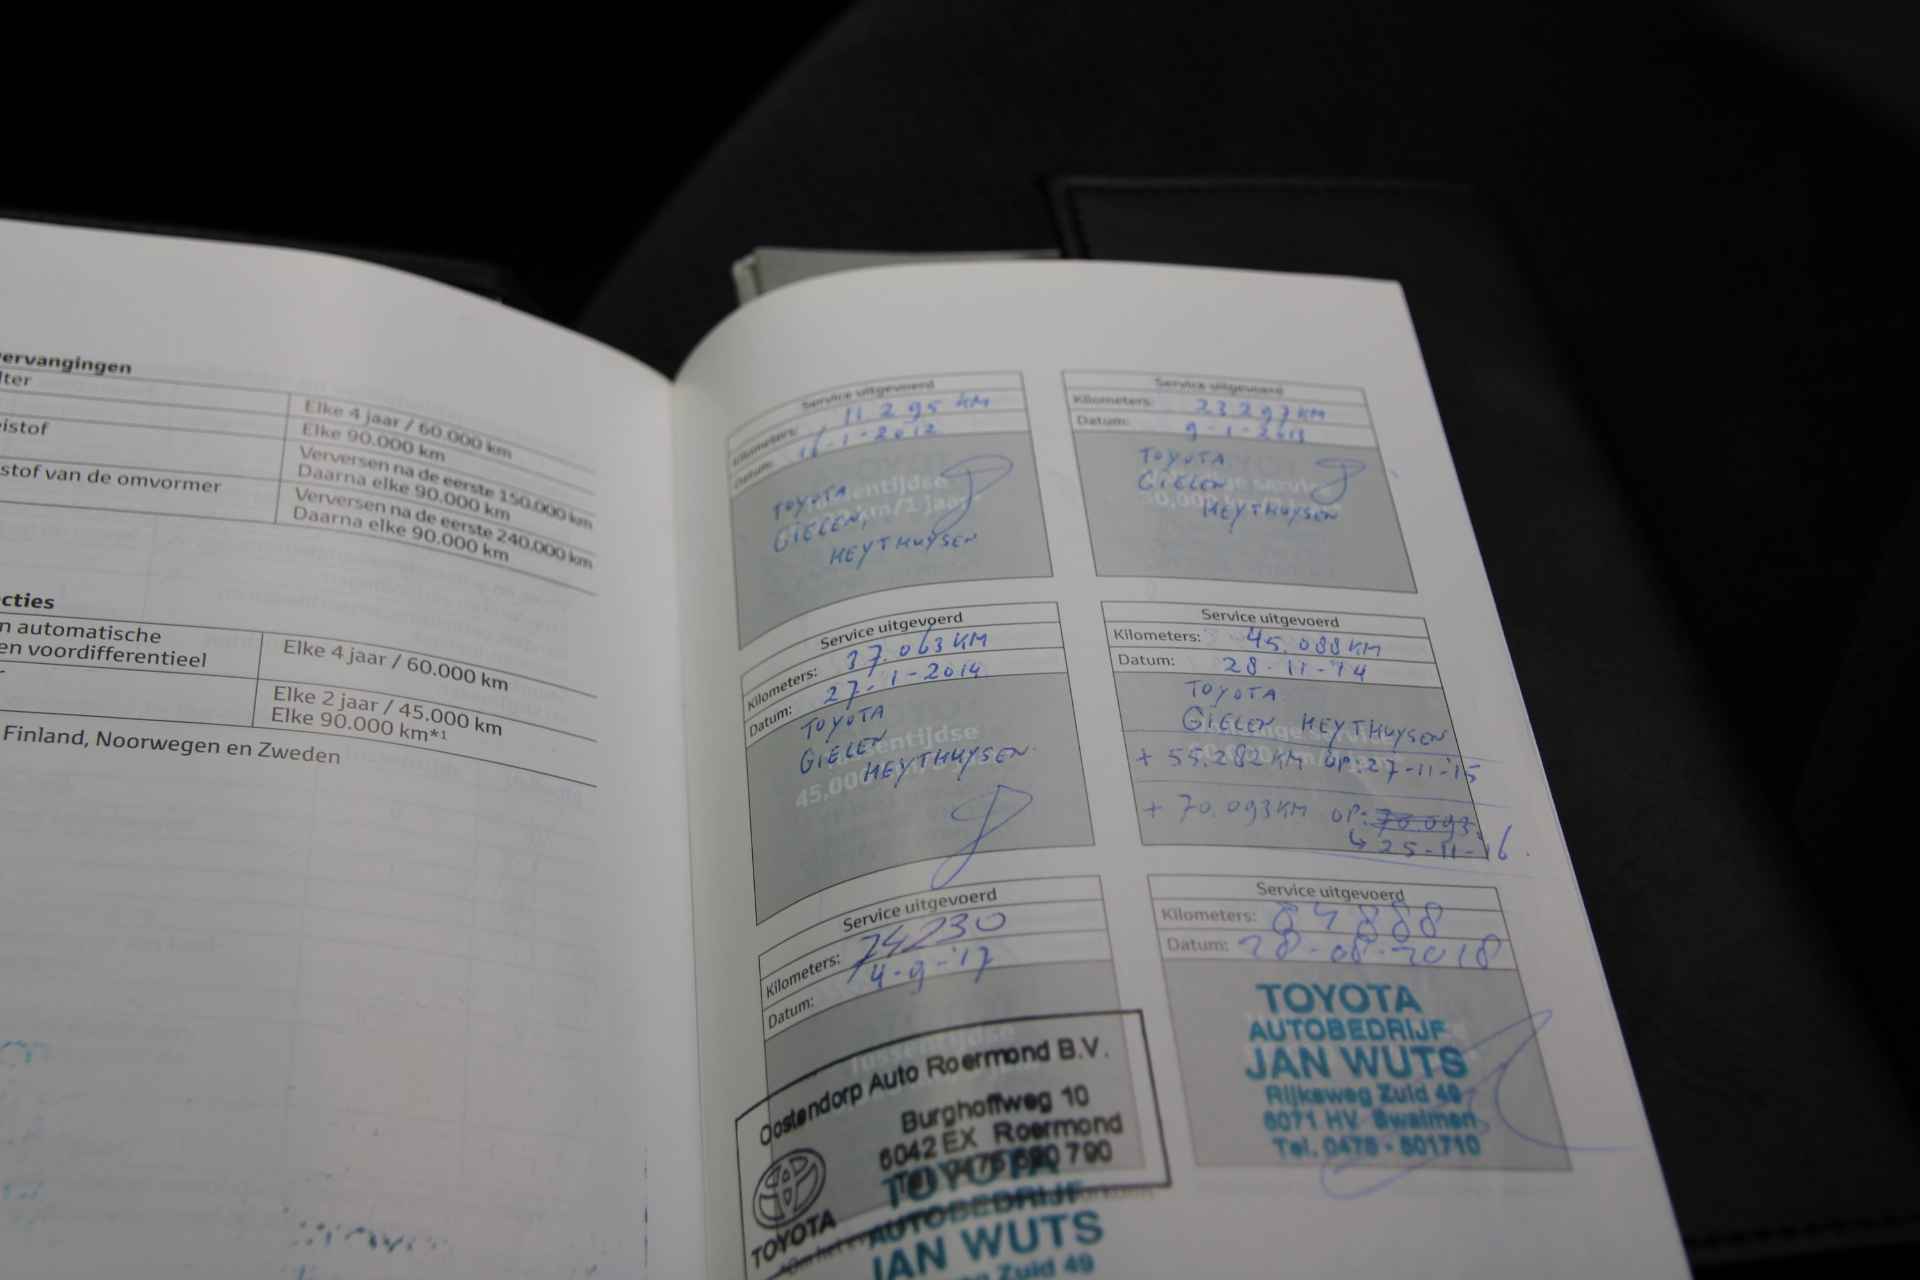 ervangingen
lter
Elke 4 jaar / 60.000 km
Elke 90.000 km
eistof
Verversen na de eerste 150.000 km
Daarna elke 90.000 km
stof van de omvormer
Verversen na de eerste 240.000 km
Daarna elke 90.000 km
cties
n automatische
en voordifferentieel
Elke 4 jaar / 60.000 km
Elke 2 jaar / 45.000 km
Elke 90.000 km*1
Finland, Noorwegen en Zweden
Service uitgevoerd
Kilometers: 11 295 KM
Datum: 16-1-2012
TOYOTA
GIELEN,
HEYTHUYSEN
Service uitgevoerd
Kilometers: 23 297 KM
Datum: 9-1-2013
TOYOTA
GIELEN
HEYTHUYSEN
Service uitgevoerd
Kilometers: 37.063 KM
Datum: 27-1-2014
TOYOTA
GIELEN
HEYTHUYSEN
45,000
Service uitgevoerd
Kilometers: 45.088 KM
Datum: 28-11-'14
TOYOTA
GIELEN HEYTHUYSEN
+ 55.282 KM OP: 27-11-'15
+ 70.093 KM OP: 70.093
↳ 25-11-16.
Service uitgevoerd
Kilometers: 74230
Datum: 4-9-'17
Oostendorp Auto Roermond B.V.
Burghoffweg 10
6042 EX Roermond
790
TOYOTA
TOYOTA
AUTOBEDRIJF
JAN WUTS
Zuid 49
Service uitgevoerd
Kilometers: 84888
Datum: 28-08-2018
TOYOTA
AUTOBEDRIJF
JAN WUTS
Rijksweg Zuid 49
6071 HV Swalmen
Tel. 0475 - 501710